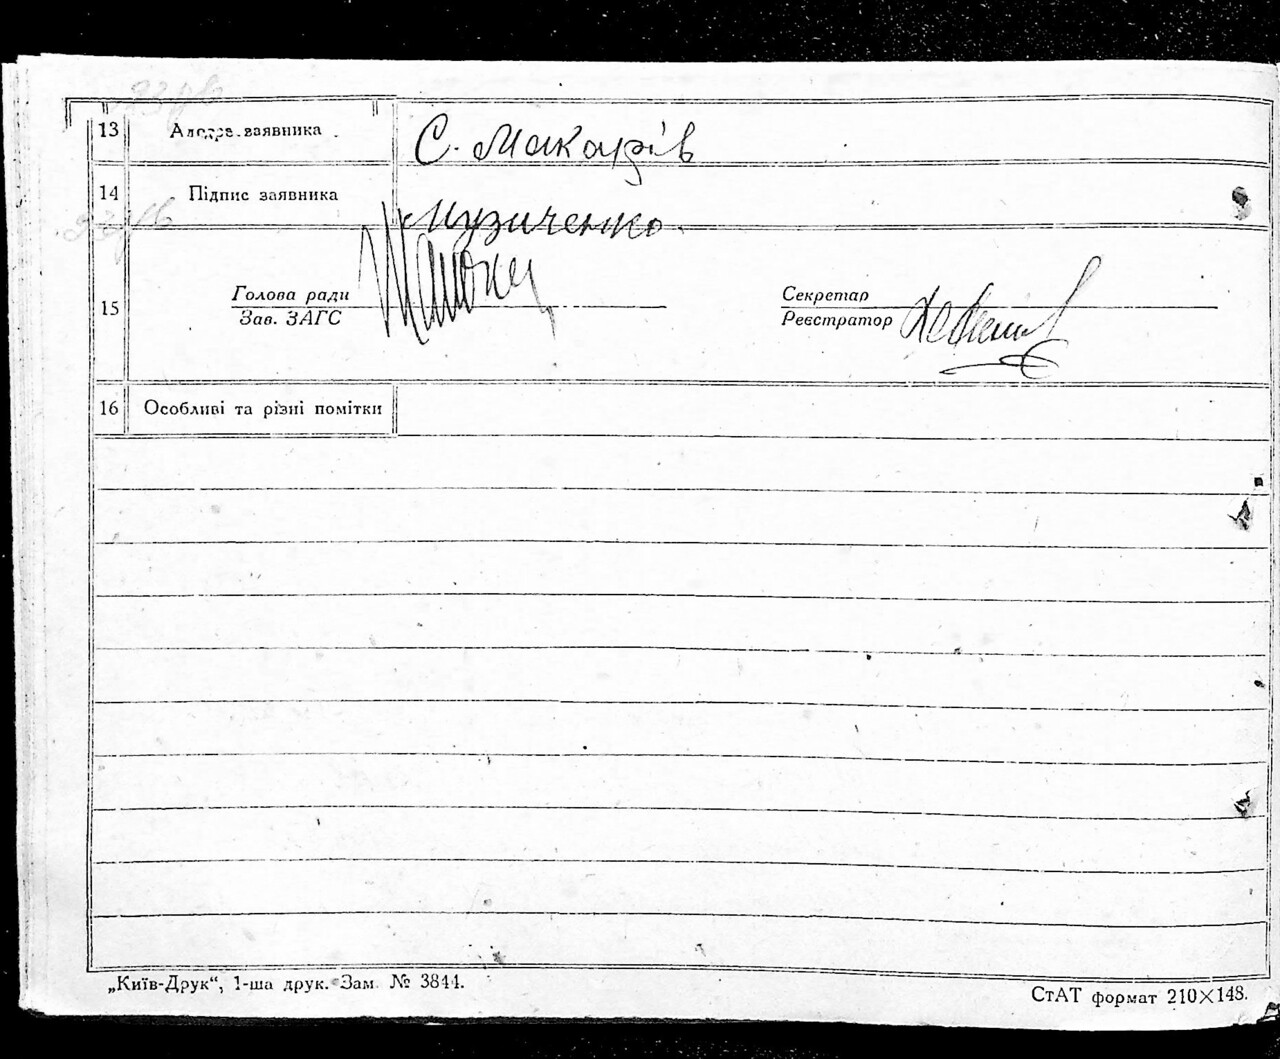 13 Адреса заявника С. Макарів
14 Підпис заявника Музиченко
15 Голова ради Секретар
Зав. ЗАГС Реєстратор
16 Особливі та різні помітки
„Київ-Друк“, 1-ша друк. Зам. № 3844.
СтАТ формат 210×148.